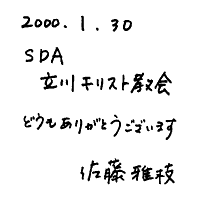 2000.1.30
SDA
立川キリスト教会
どうもありがとうございます
佐藤雅枝